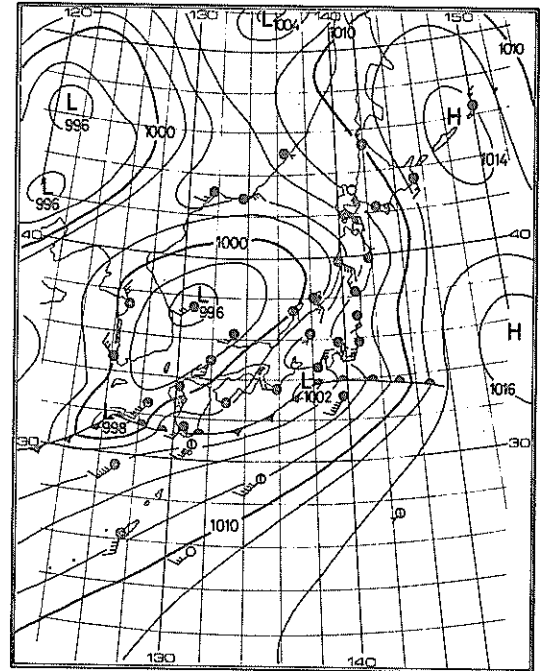 120 130 L 1004 140 150
1010 1010
L
996 H
1000
1014
L
996
40 1000 40
L
996
H
L
1002 1016
L
998
30 30
1010
130 140